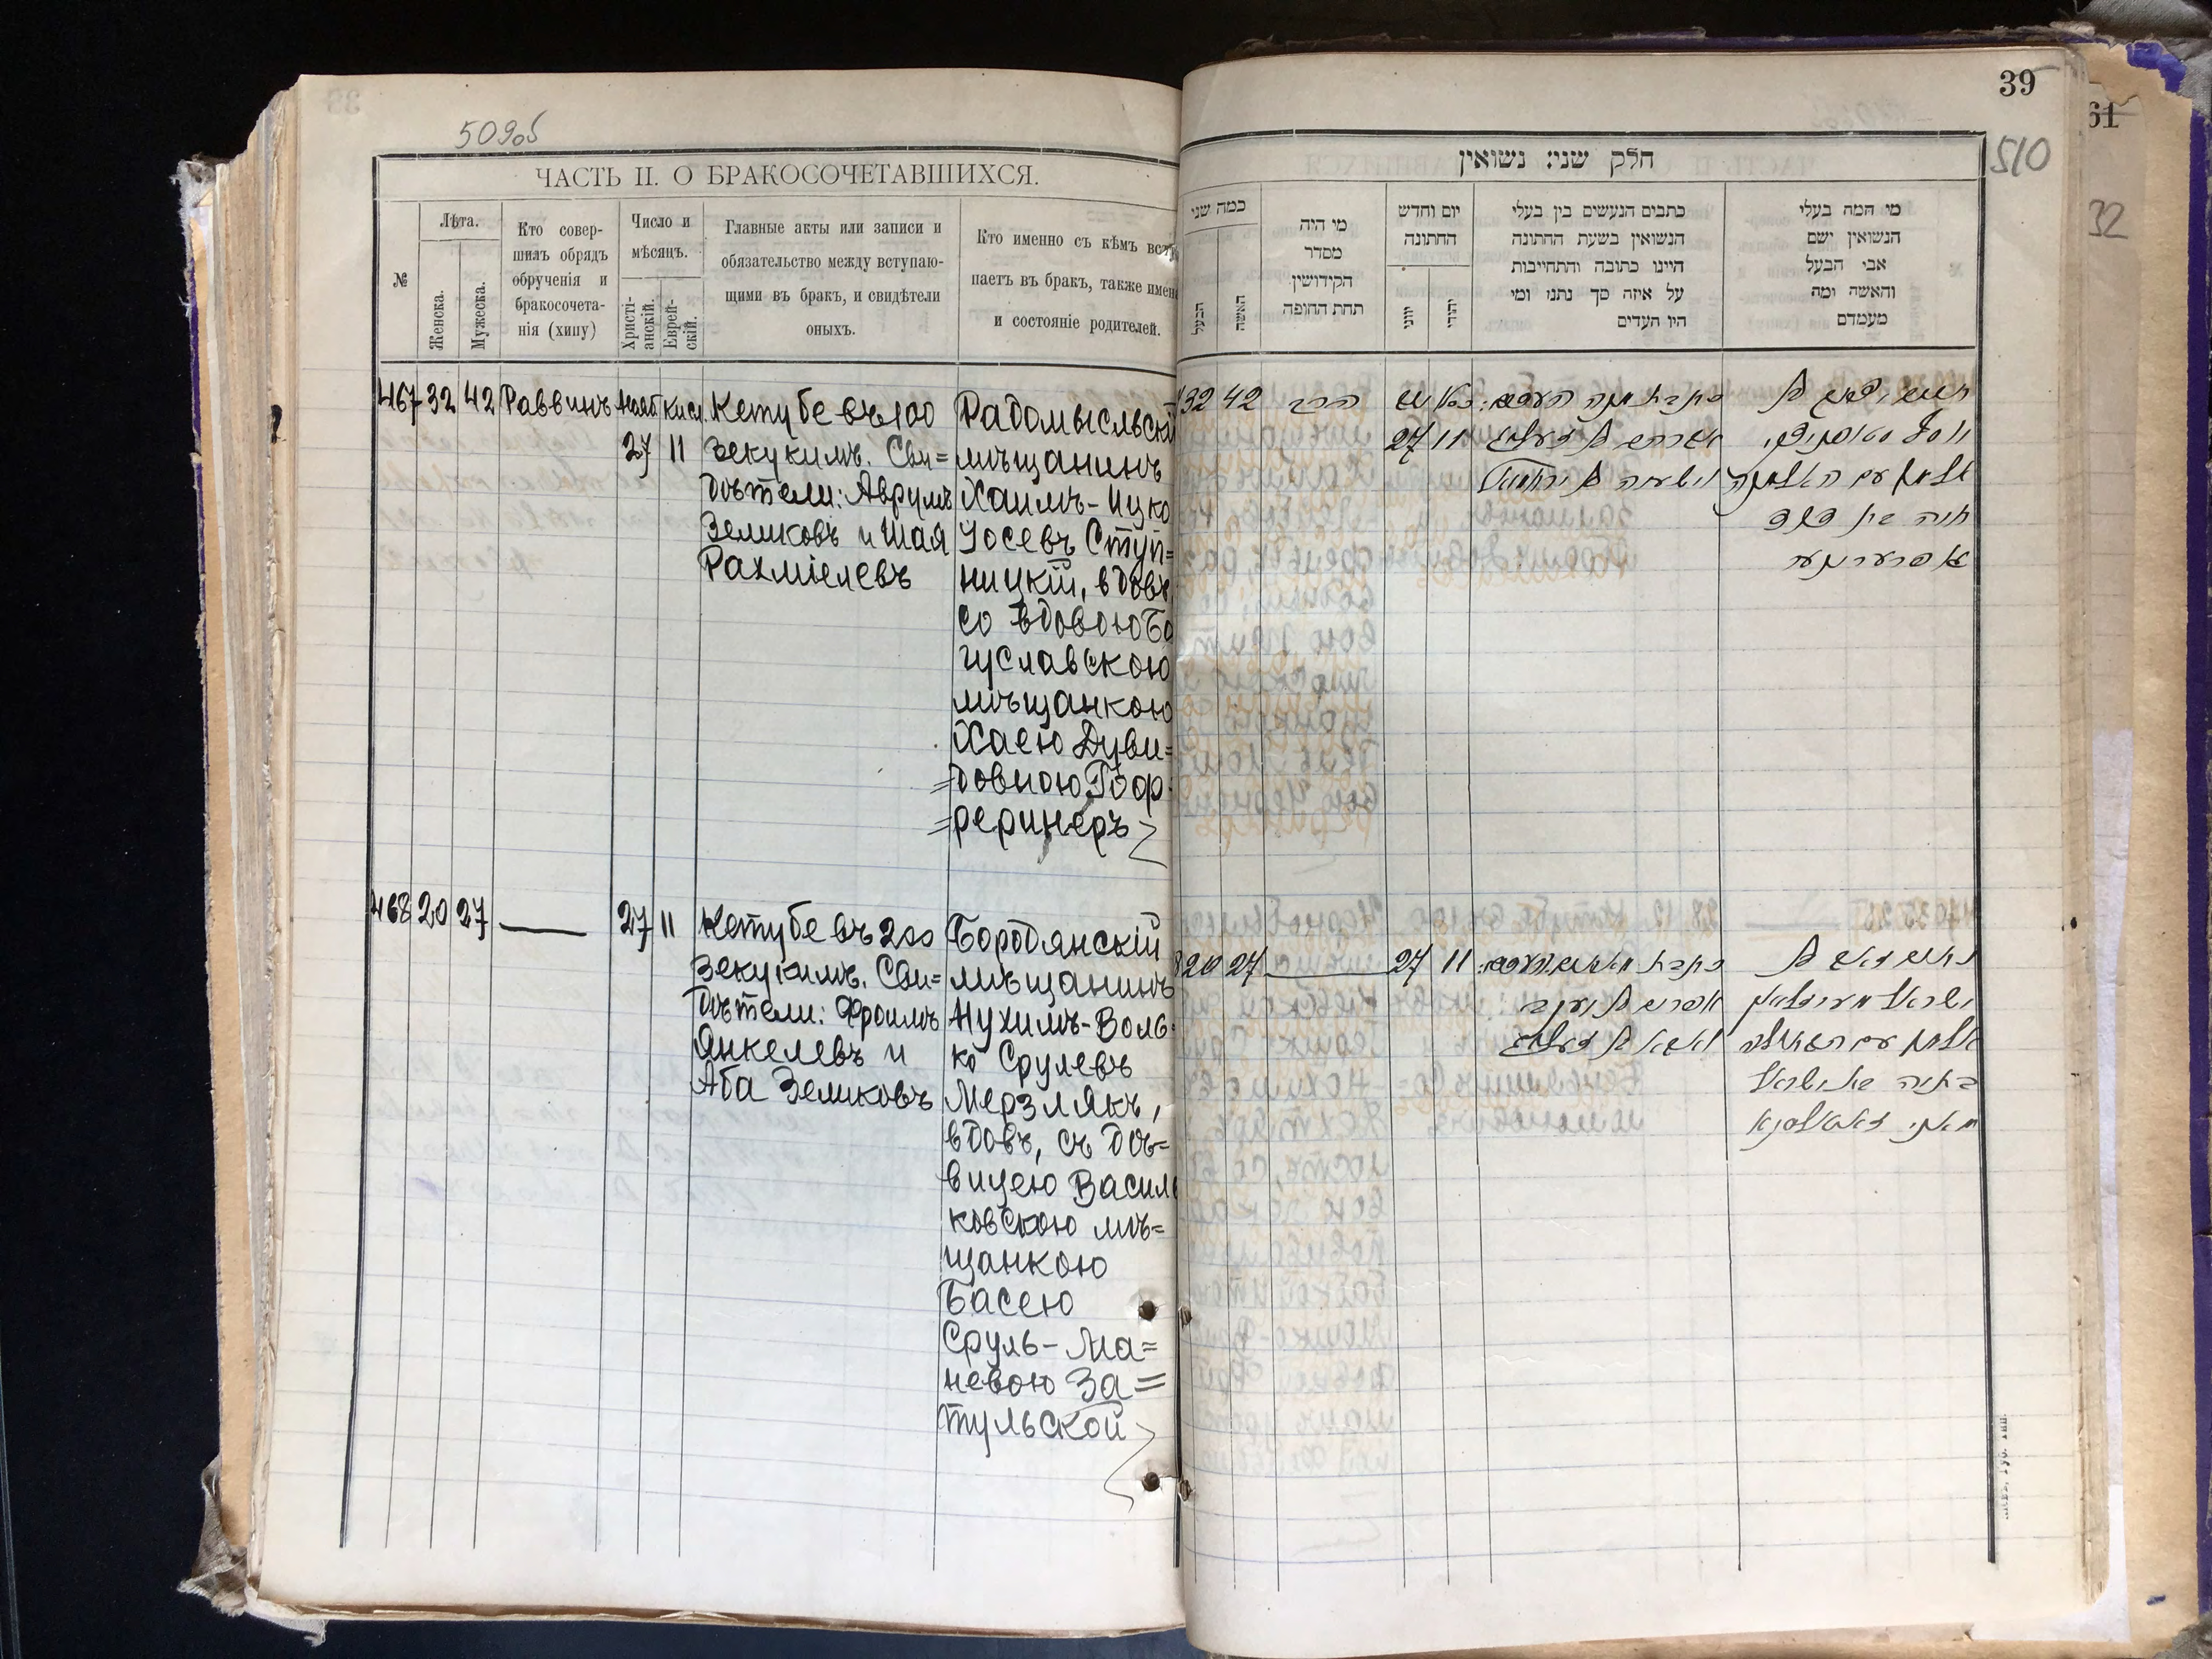 509об
ЧАСТЬ II. О БРАКОСОЧЕТАВШИХСЯ.
№
Лѣта.
Женска.
Мужеска.
Кто совер-
шилъ обрядъ
обрученія и
бракосочета-
нія (хипу)
Число и
мѣсяцъ.
Христі-
анскій.
Еврей-
скій.
Главные акты или записи и
обязательство между вступаю-
щими въ бракъ, и свидѣтели
оныхъ.
Кто именно съ кѣмъ всту
паетъ въ бракъ, также имен
и состояніе родителей.
467 32 42 Раввинъ Нояб Кисл.
27 11
Кетубе въ 100
зекукимъ. Сви=
дѣтели: Аврумъ
Зеликовъ и Шая
Рахміелевъ
Радомысльскій
мѣщанинъ
Хаимъ-Ицко
Іосевъ Ступ=
ницкій, вдовъ,
со вдовою Бо
гуславскою
мѣщанкою
Хаею Дуви=
=довною Гоф
=рерингеръ
468 20 27 — 27 11
Кетубе въ 200
зекукимъ. Сви=
дѣтели: Фроимъ
Янкелевъ и
Аба Зеликовъ
Бородянскій
мѣщанинъ
Нухимъ-Воль
ко Срулевъ
Мерзлякъ,
вдовъ, съ дѣ=
вицею Василь
ковскою мѣ=
щанкою
Басею
Сруль-Ма=
невою За=
тульской
39
510
61
32
חלק שני: נשואין
כמה שני
הבעל
האשה
מי היה
מסדר
הקידושין
תחת החופה
יום וחדש
החתונה
יווני
יהודי
כתבים הנעשים בין בעלי
הנשואין בשעת החתונה
היינו כתובה והתחייבות
על איזה סך נתנו ומי
היו העדים
מי המה בעלי
הנשואין ושם
אבי הבעל
והאשה ומה
מעמדם
32 42 הרב
27 11
אברהם בן זעליג
וישעיה בן ירחמיאל
אלמן עם האלמנה
חיה בת
20 27 — 27 11
אפרים בן יעקב
ואבא בן זעליג
אלמן עם הבתולה
בתיה בת ישראל